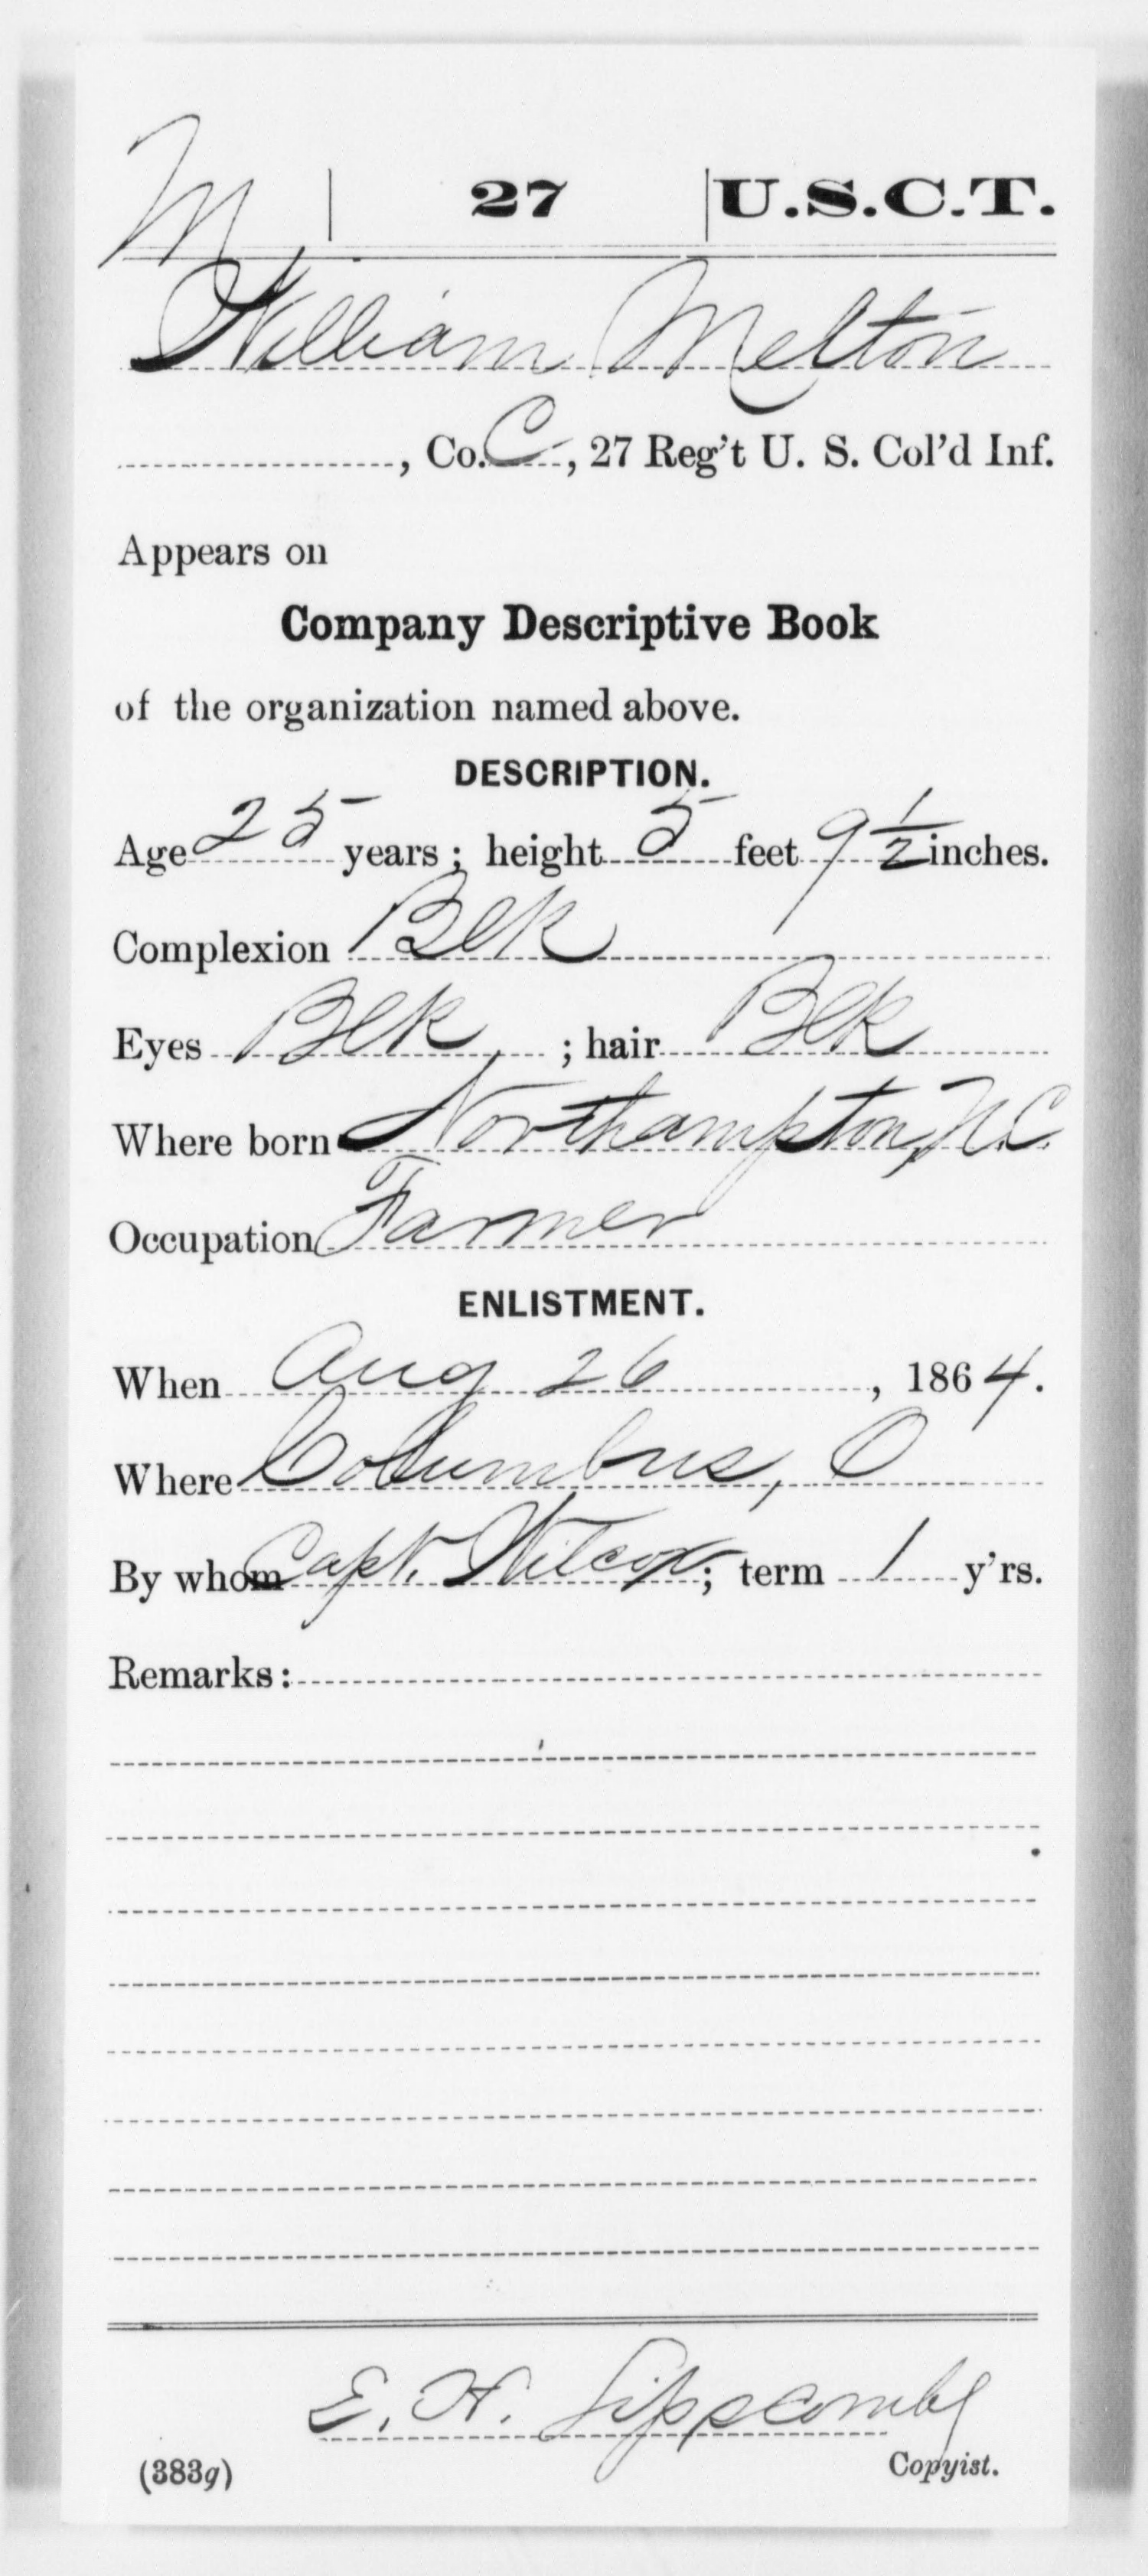 M | 27 | U.S.C.T.
William Melton
, Co. C, 27 Reg't U. S. Col'd Inf.
Appears on
Company Descriptive Book
of the organization named above.
DESCRIPTION.
Age 25 years; height 5 feet 9 1/2 inches.
Complexion Blk
Eyes Blk ; hair Blk
Where born Northampton, N.C.
Occupation Farmer
ENLISTMENT.
When Aug 26, 1864.
Where Columbus, O
By whom Capt. Wilcox; term 1 y'rs.
Remarks:
E. H. Lipscomb
(383g) Copyist.